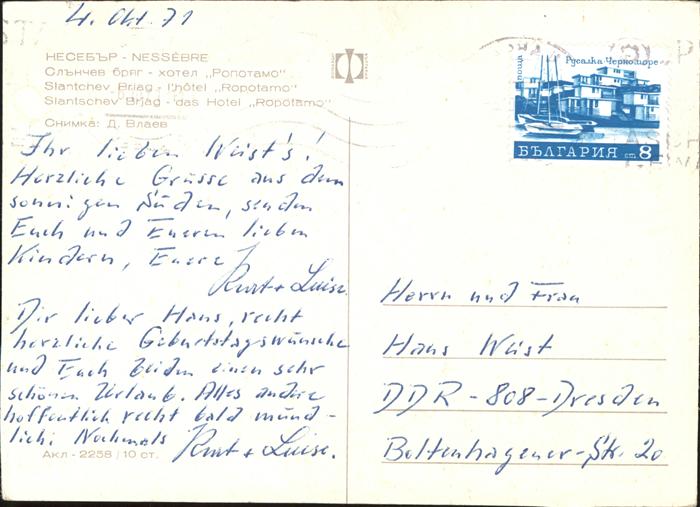 4. Okt. 71
НЕСЕБЪР - NESSÈBRE
Слънчев бряг - хотел „Ропотамо“
Slantchev Briag - l'hôtel „Ropotamo“
Slantschev Brjag - das Hotel „Ropotamo“
Снимка: Д. Влаев
Ihr lieben Weist's!
Herzliche Grüsse aus dem
sonnigen Süden, senden
Euch und Eueren lieben
Kindern, Euere
Kurt + Luise.
Dir lieber Hans, recht
herzliche Geburtstagswünsche
und Euch beiden einen sehr
schönen Urlaub. Alles andere
hoffentlich recht bald münd-
lich! Nochmals
Kurt + Luise.
Акл - 2258 / 10 ст.
поща
Русалка Черноморе
БЪЛГАРИЯ ст. 8
Herrn und Frau
Hans Weist
DDR - 808 - Dresden
Boltenhagener-Str. 20